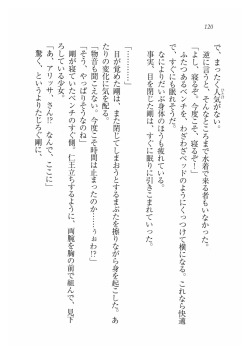 120
で、まったく人気がない。
逆に言うと、そんなところまで水着で来る者もいなかった。
「よし、寝るぞ、今度こそ、寝るぞ！」
ふたつあるベンチを、わざわざベッドのようにくっつけて横になる。これなら快適
で、すぐにも眠れそうだ。
なによりだいぶ身体のほうも疲れている。
事実、目を閉じた剛は、すぐに眠りに引きこまれていった。
「…………」
目が覚めた剛は、また閉じてしまおうとするまぶたを擦りながら身を起こした。あ
たりの変化に気を配る。
「物音も聞こえない。今度こそ時間は止まったのか……うぉわ!?」
「そう、やっぱりそうなのね」
剛が寝ていたベンチのすぐ側。仁王立ちするように、両腕を胸の前で組んで、見下
ろしている少女。
「あ、アリッサ、さん!?　なんで、ここに」
驚く、というよりたじろぐ剛に、